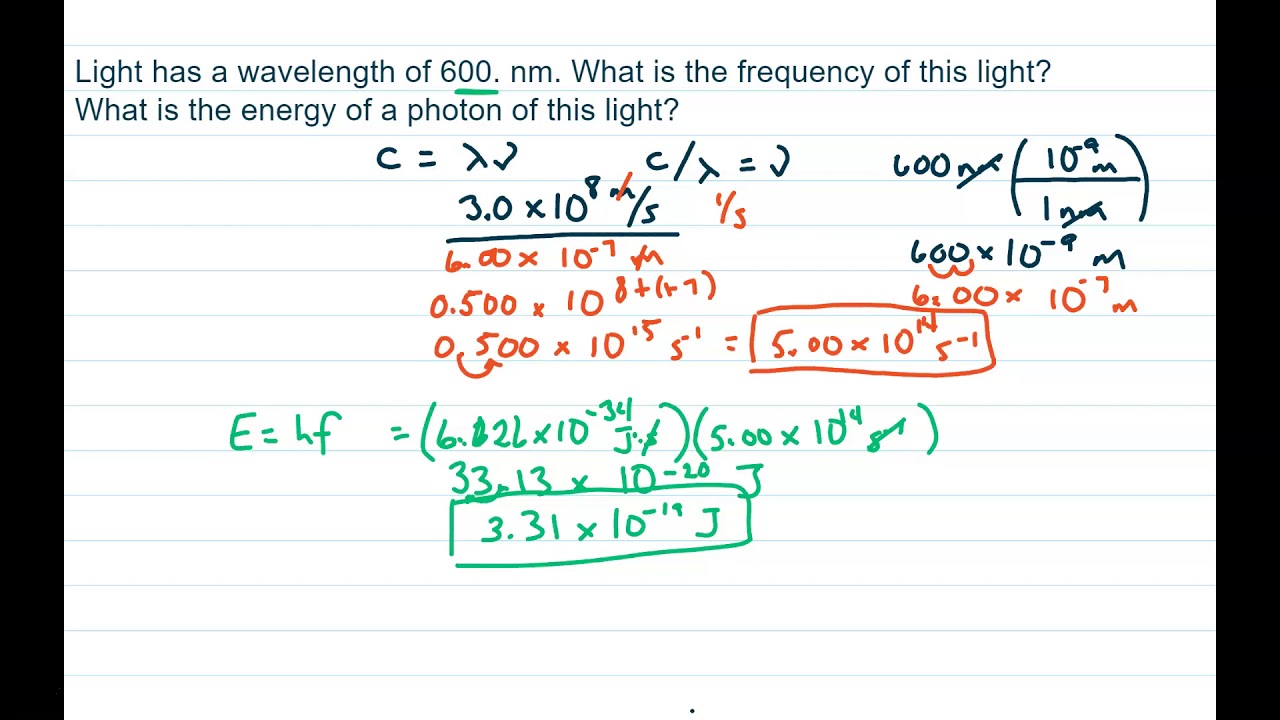 Light has a wavelength of 600. nm. What is the frequency of this light?
What is the energy of a photon of this light?
c = λν
c/λ = ν
3.0 × 10⁸ m/s
1/s
6.00 × 10⁻⁷ m
0.500 × 10⁸⁺⁽⁺⁷⁾
0.500 × 10¹⁵ s⁻¹ = 5.00 × 10¹⁴ s⁻¹
600 nm (10⁻⁹ m / 1 nm)
600 × 10⁻⁹ m
6.00 × 10⁻⁷ m
E = hf = (6.626 × 10⁻³⁴ J·s)(5.00 × 10¹⁴ s⁻¹)
33.13 × 10⁻²⁰ J
3.31 × 10⁻¹⁹ J